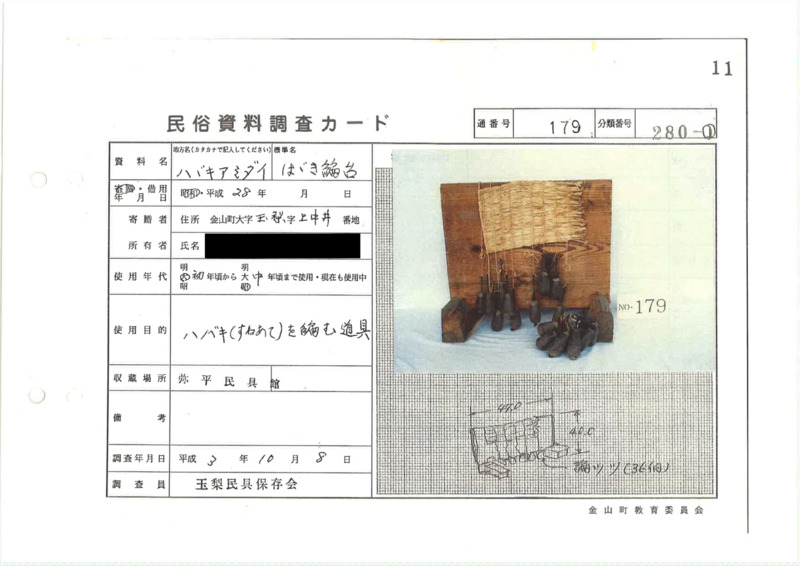 11
民俗資料調査カード
通番号 179 分類番号 280-0
資料名 地方名(カタカナで記入してください) 標準名
ハバキアミダイ はばき編台
寄贈・借用年月日 昭和・平成 28年 月 日
寄贈者 住所 金山町大字玉梨字上中井 番地
所有者 氏名
使用年代 明大昭 初年頃から 明大昭 中年頃まで使用・現在も使用中
使用目的 ハバキ(すねあて)を編む道具
収蔵場所 弥平民具館
備考
調査年月日 平成 3年 10月 8日
調査員 玉梨民具保存会
NO. 179
40.0
(36個)
金山町教育委員会